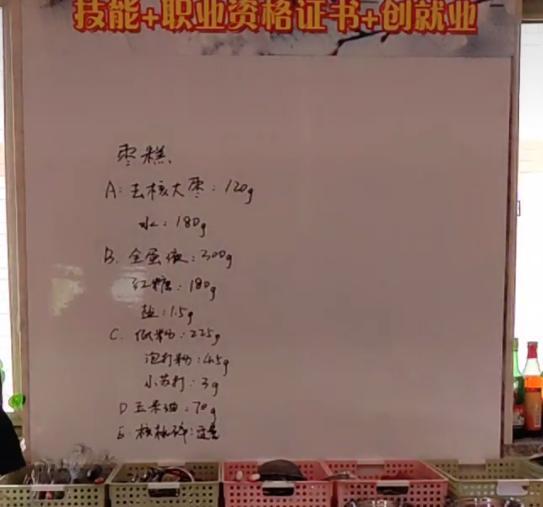 技能+职业资格证书+创就业
枣糕
A: 去核大枣: 120g
水: 180g
B. 全蛋液: 300g
红糖: 180g
盐: 1.5g
C. 低粉: 225g
泡打粉: 4.5g
小苏打: 3g
D 玉米油: 70g
E 核桃碎: 适量